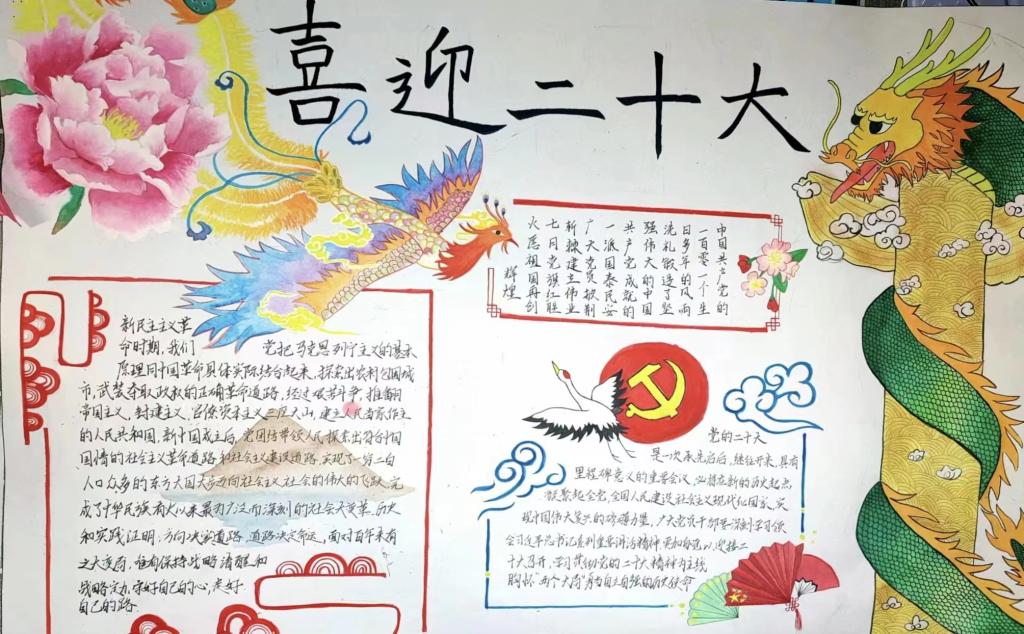 喜迎二十大
中国共产党的
一百零一个生
日多年的风雨
洗礼锻造了坚
强伟大的中国
共产党成就的
一派国泰民安
广大党员
建伟业
七月党旗红胜
火愿祖国再创
辉煌
新民主主义革
命时期,我们 党把马克思列宁主义的基本
原理同中国革命具体实际结合起来,探索出农村包围城
市,武装夺取政权的正确革命道路,经过艰苦斗争,推翻
帝国主义、封建主义、官僚资本主义三座大山,建立人民当家作主
的人民共和国,新中国成立后,党团结带领人民探索出符合中国
国情的社会主义革命道路和社会主义建设道路,实现了一穷二白
人口众多的东方大国大步迈向社会主义社会的伟大的飞跃,完
成了中华民族有史以来最为广泛而深刻的社会大变革.历史
和实践证明,方向决定道路,道路决定命运,面对百年未有
之大变局,唯有保持战略清醒和
战略定力,守好自己的心,走好
自己的路.
党的二十大
是一次承先启后,继往开来,具有
里程碑意义的重要会议,必将在新的历史起点,
凝聚起全党、全国人民建设社会主义现代化国家,实
现中国伟大复兴的磅礴力量,广大党员干部要深刻学习领
会习近平总书记系列重要讲话精神,更加自觉以迎接二
十大召开,学习贯彻党的二十大精神为主线
胸怀"两个大局"